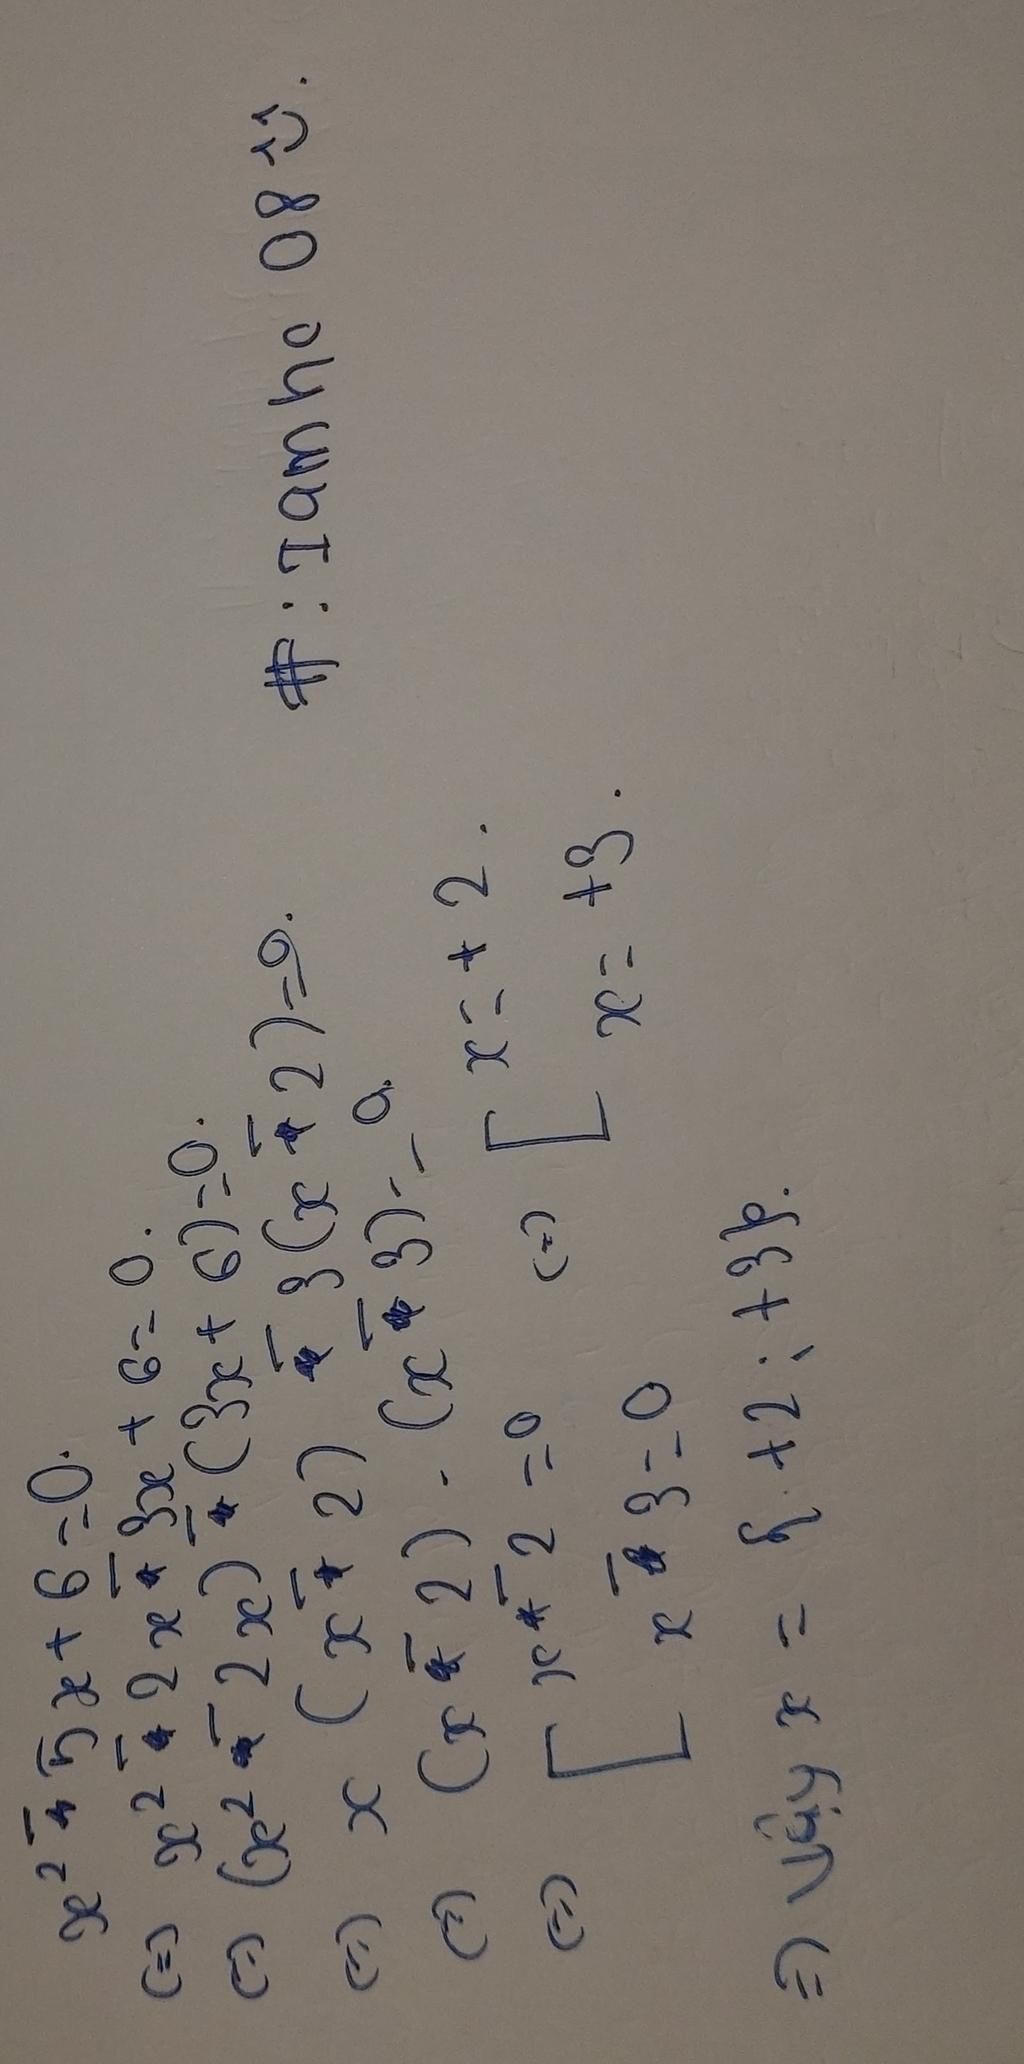 x² - 5x + 6 = 0.
(=) x² - 2x - 3x + 6 = 0.
(=) (x² - 2x) - (3x + 6) = 0.
(=) x (x - 2) - 3(x - 2) = 0.
(=) (x - 2) . (x - 3) = 0.
(=) [ x - 2 = 0 (=) [ x = + 2.
x - 3 = 0 x = +3.
=) vậy x = { +2 ; +3 }.
#: Iamhc 08 :).